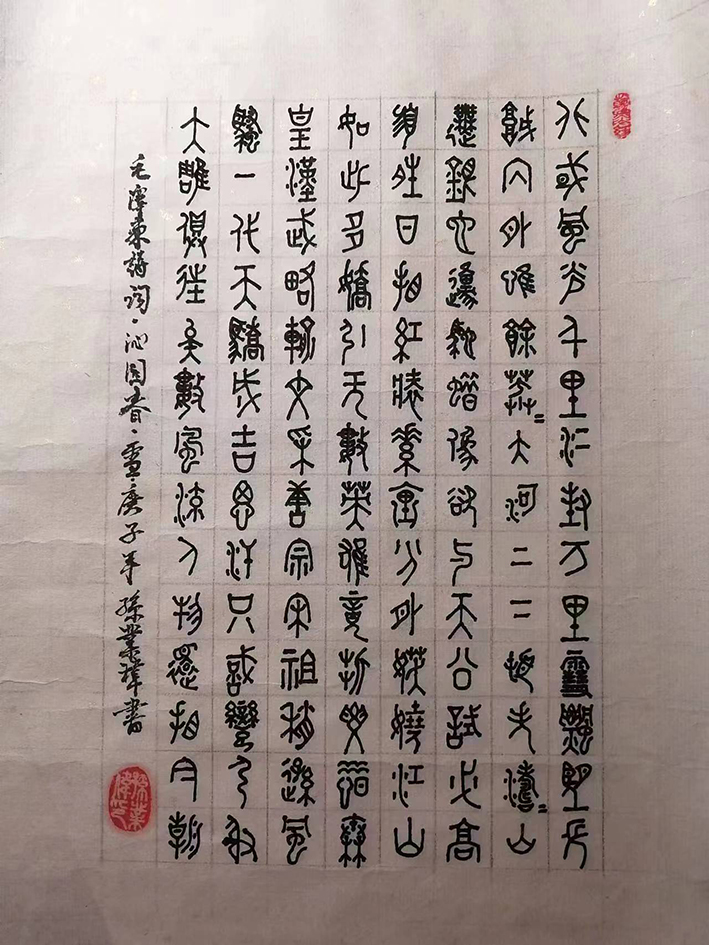 北國風光千里冰封万里雪飄望長
城內外唯餘莽=大河上下頓失滔=山
舞銀蛇原馳蠟象欲与天公試比高
須晴日看紅裝素裹分外妖嬈江山
如此多嬌引无數英雄競折腰惜秦
皇漢武略輸文采唐宗宋祖稍遜風
騷一代天驕成吉思汗只識彎弓射
大雕俱往矣數風流人物還看今朝
毛澤東詩詞·沁園春·雪·庚子年孫業書